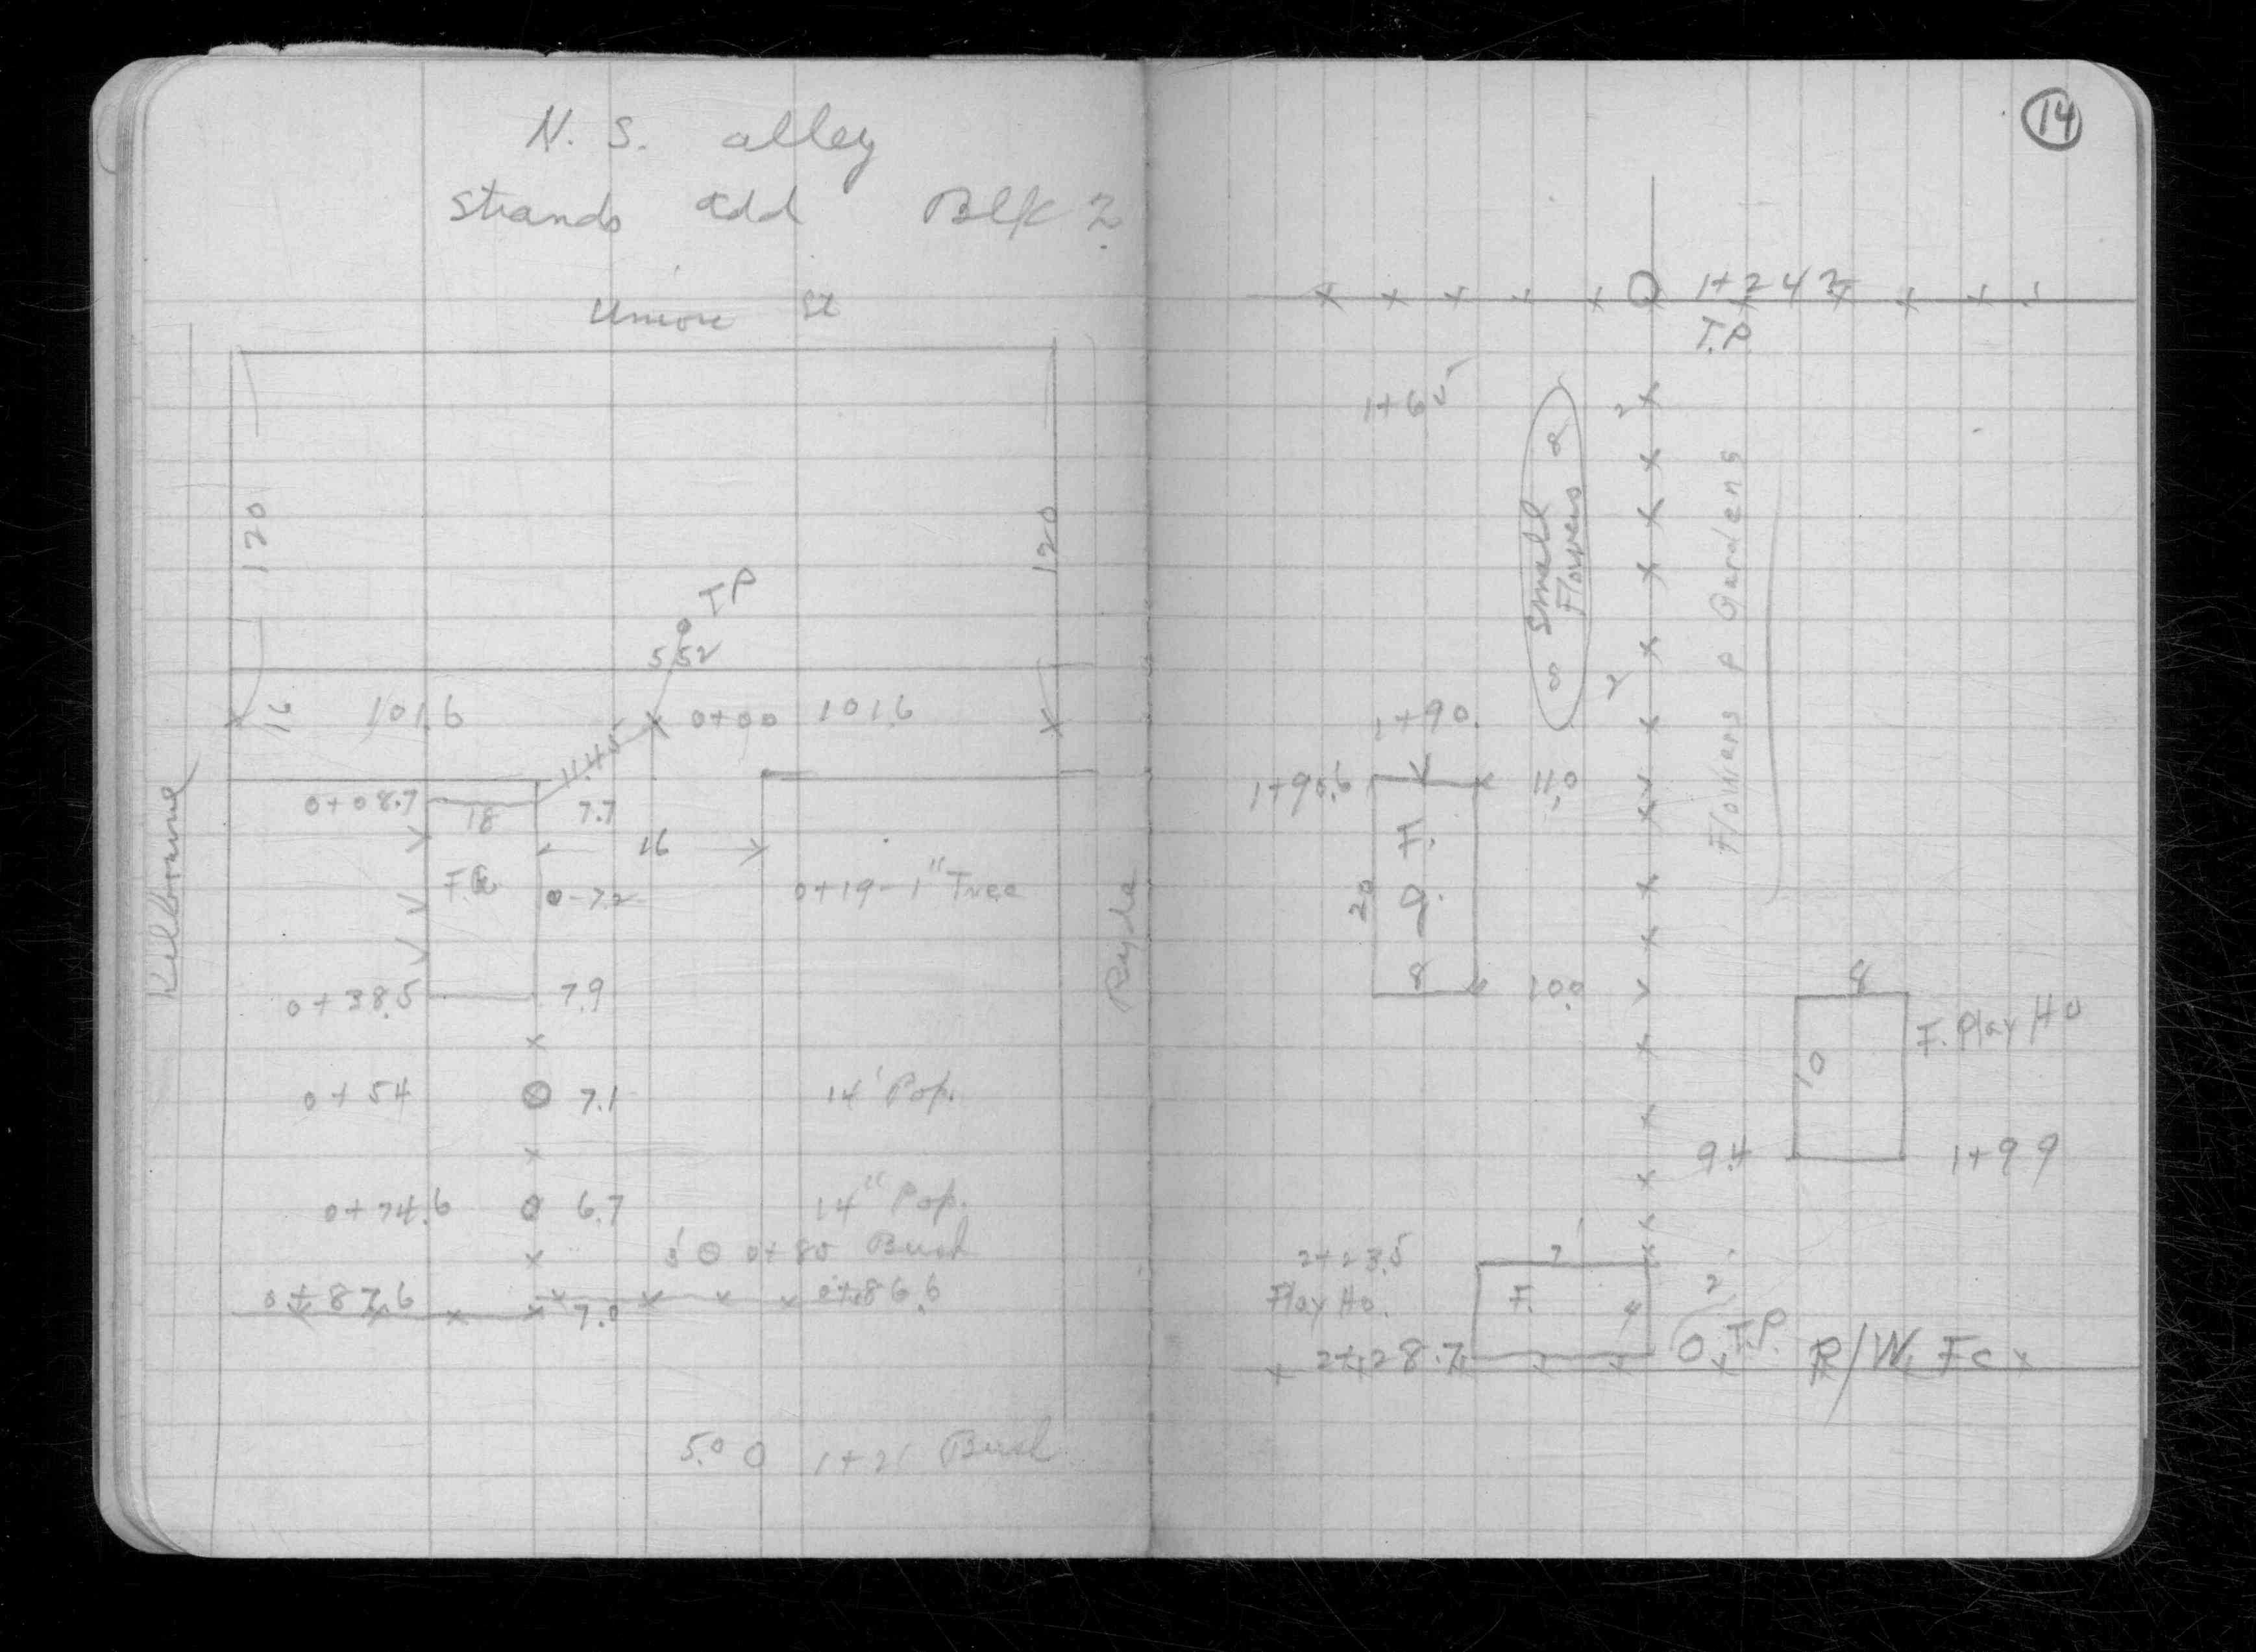 N. S. alley
Strands add Blk 2.
Union St
120
120
TP
5.52
16
101.6
0+00
101.6
11.45
0+08.7
18
7.7
16
Kilbourne
F.G.
0-7.2
0+19-1" Tree
Ryde
0+38.5
7.9
0+54
7.1
14' Pop.
0+74.6
6.7
14" Pop.
3' 0+80 Bush
0+87.6
7.0
0+86.6
5.0 1+21 Bush
14
1+24.2
T.P.
1+65
2
Small
Flowers
Flowers & Gardens
2
1+90.
1+90.6
11.0
F.
G.
20
8
10.0
8
F. Play Ho
10
9.4
1+99
2+23.5
7'
Play Ho.
F.
4
2
2+28.7
T.P.
R/W. Fc